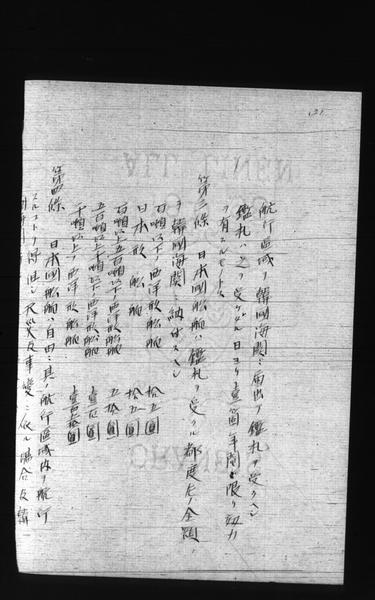 航行區域ヲ韓國海關ニ届出テ鑑札ヲ受クヘシ
鑑札ハ之ヲ受ケタル日ヨリ壹箇年間ヲ限リ効力
ヲ有スルモノトス
第三條 日本國船舶ハ鑑札ヲ受クル都度左ノ金額
ヲ韓國海關ニ納付スヘシ
百噸以下ノ西洋形船舶 拾五圓
日本形船舶 拾五圓
百噸以上五百噸以下ノ西洋形船舶 五拾圓
五百噸以上千噸以下ノ西洋形船舶 壹百圓
千噸以上ノ西洋形船舶 壹百五拾圓
第四條 日本國船舶ハ自由ニ其ノ航行區域内ヲ航行
スルコトヲ得 但シ天災及事變ニ依ル場合及韓
ALL LINEN